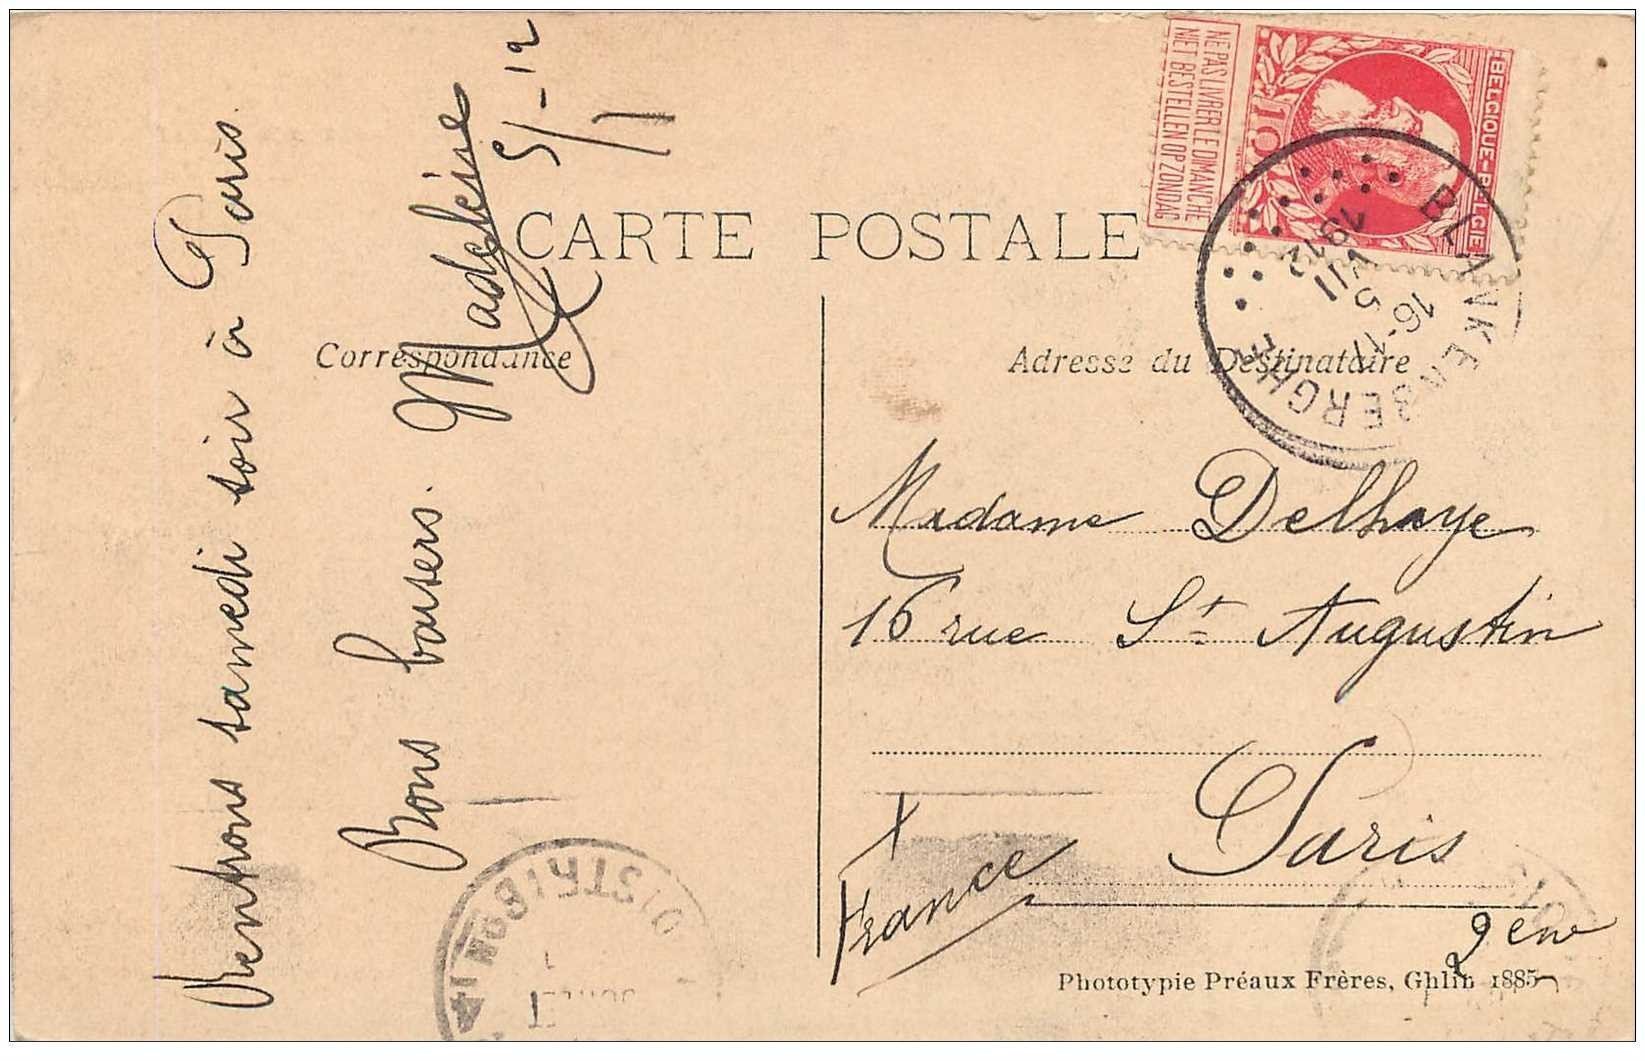 CARTE POSTALE
Correspondance
Adresse du Destinataire
Rentrons samedi soir à Paris.
Bons baisers. Madeleine
5/1-12
Madame Delhaye
16 rue St Augustin
Paris
France
2ème
Phototypie Préaux Frères, Ghlin 1885
BELGIQUE-BELGIE
10
NE PAS LIVRER LE DIMANCHE
NIET BESTELLEN OP ZONDAG
BLANKENBERGHE
16-17
5
VII
1912
DISTRIBON